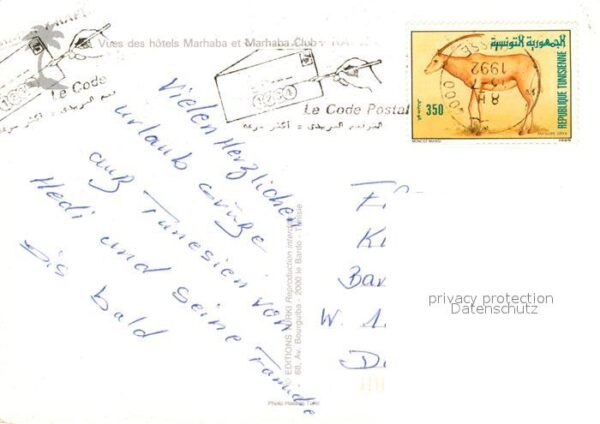 Vues des hôtels Marhaba et Marhaba Club
Le Code
Le Code Postal
1992
الجمهورية التونسية
350
REPUBLIQUE TUNISIENNE
Vielen Herzlichen
urlaub grüße
auß Tunesien von
Hedi und seine Familie
Bis bald
© EDITIONS TURKI Reproduction interdite
68, Av. Bourguiba - 2000 le Bardo - Tunisie
Photo
E
K
Ba
W.
D
privacy protection
Datenschutz